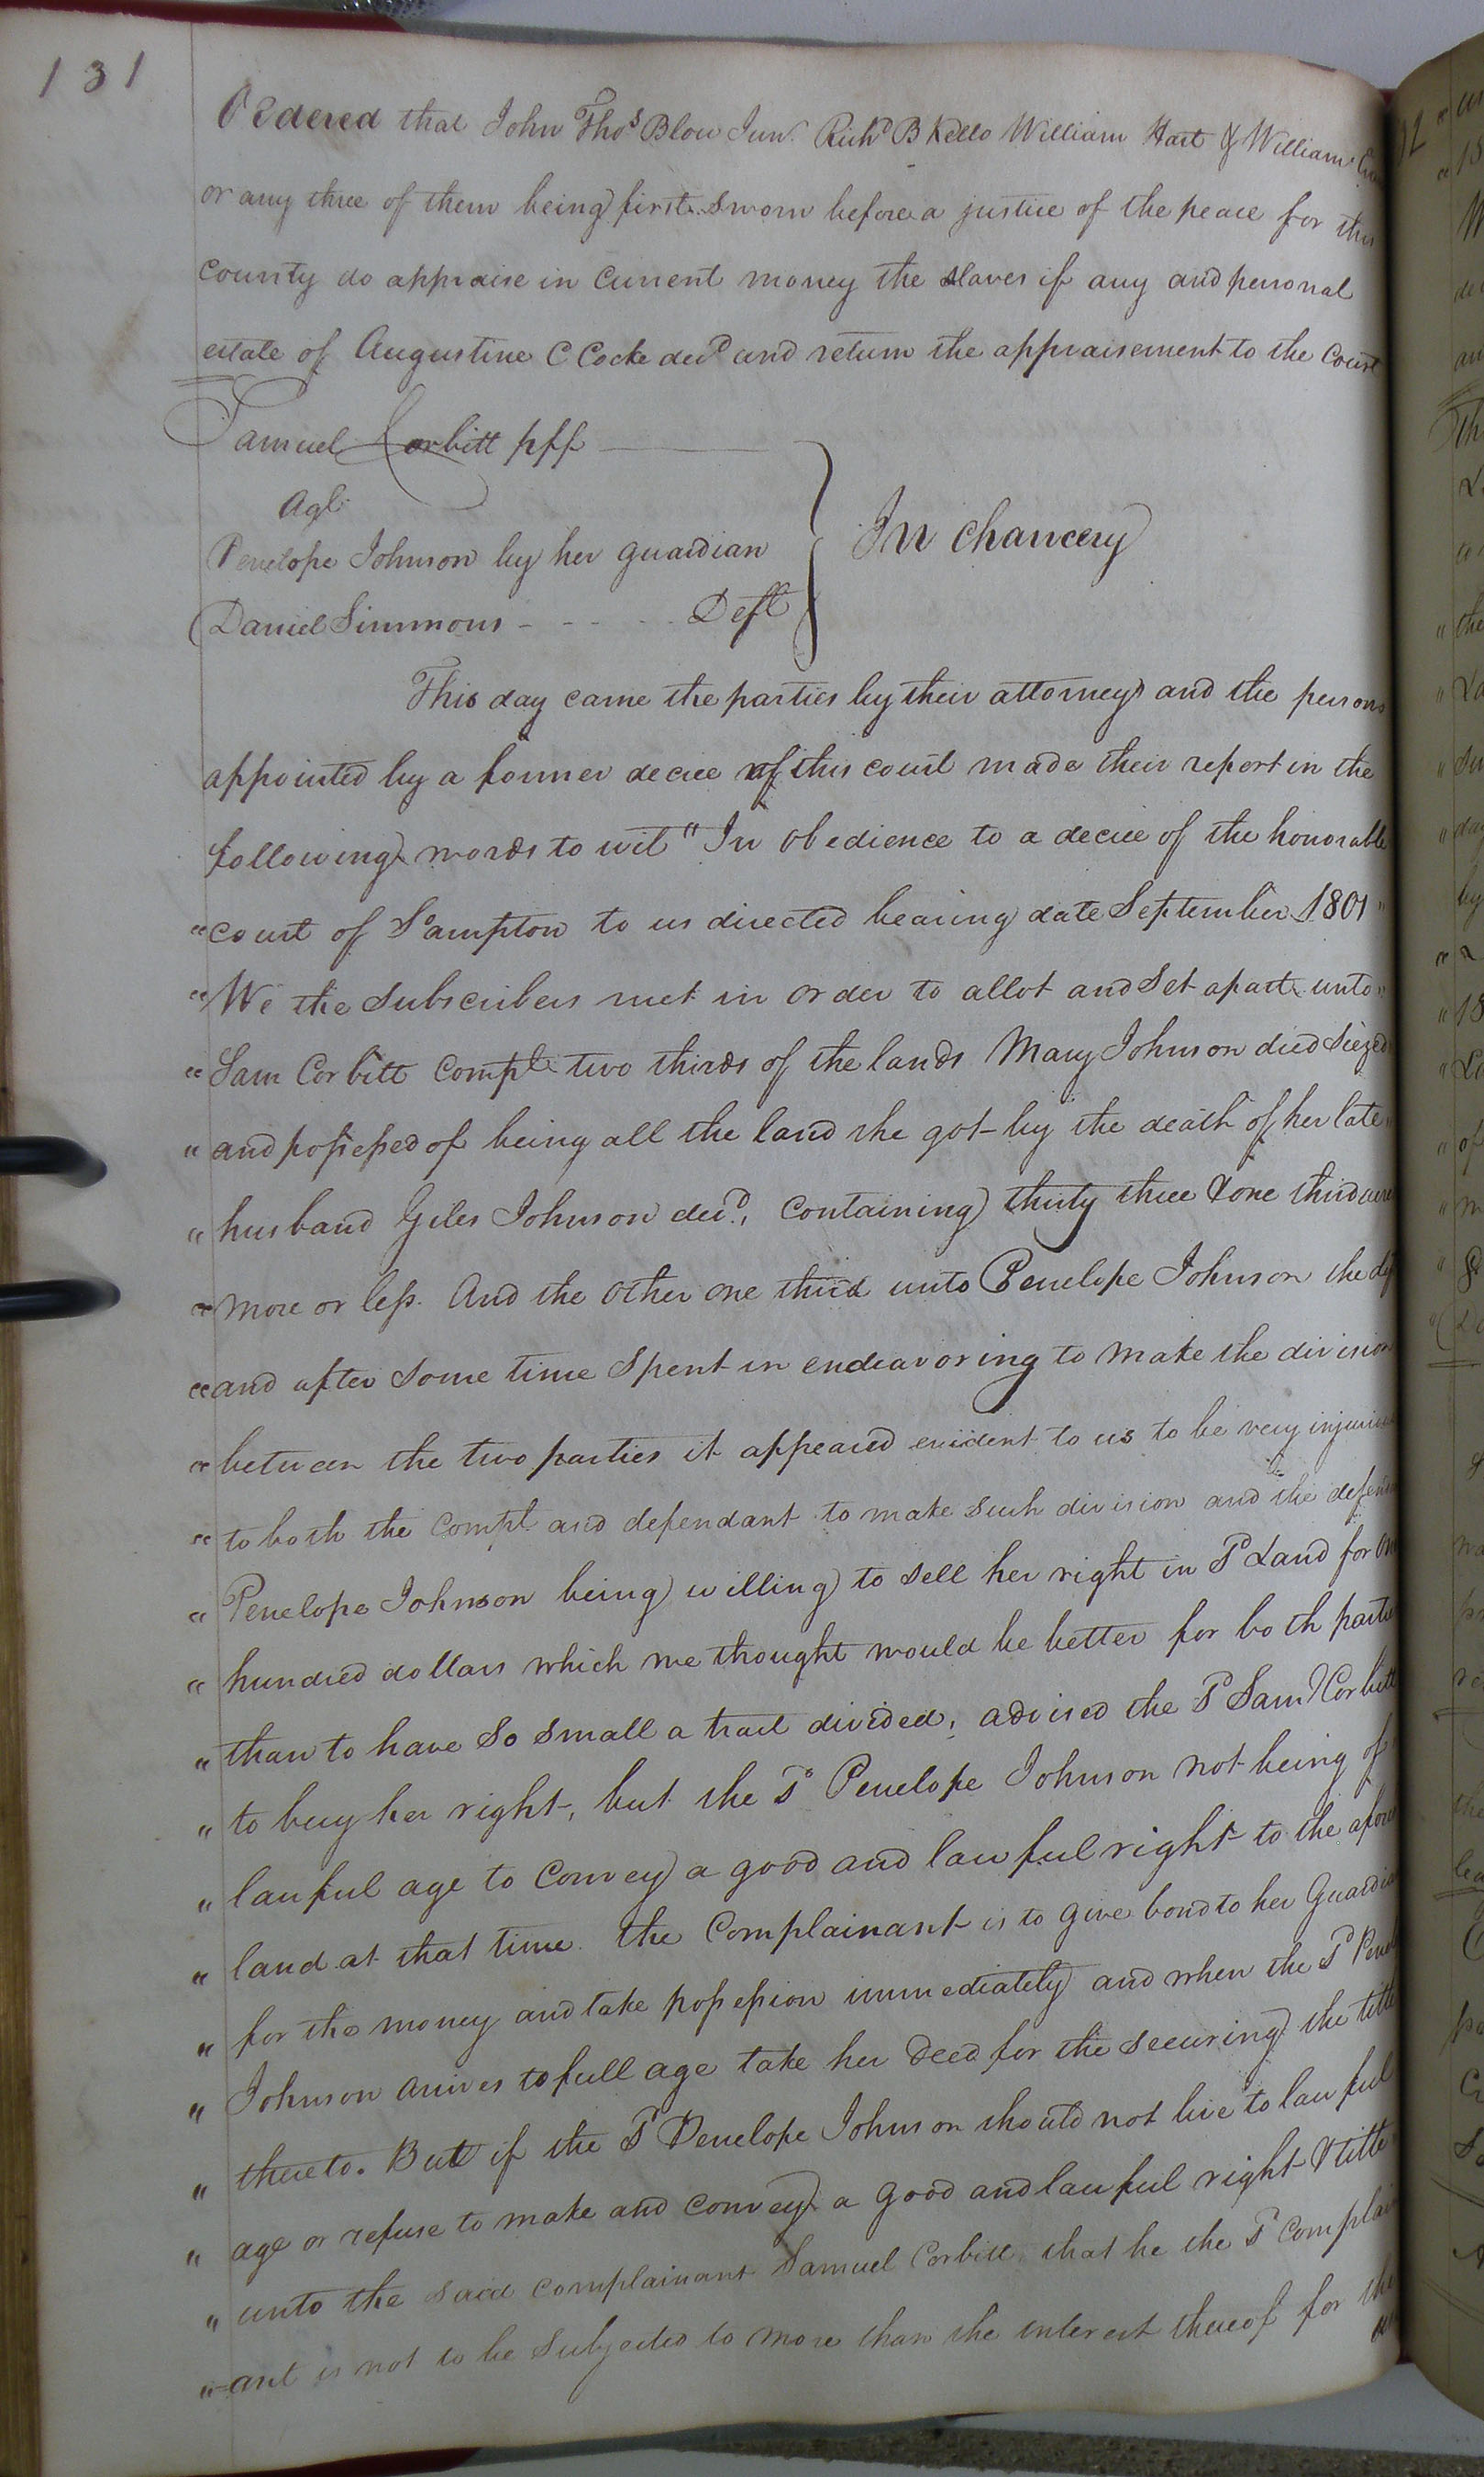 131
Ordered that John Thos Blow Junr. Richd B Kello William Hart & William
or any three of them being first sworn before a justice of the peace for this
county do appraise in Current money the slaves if any and personal
estate of Augustine C Cocke decd and return the appraisement to the Court
Samuel Corbitt plf
Agt
Penelope Johnson by her guardian
Daniel Simmons - - - - - Deft
In Chancery
This day came the parties by their attorneys and the persons
appointed by a former decree of this court made their report in the
following words to wit "In obedience to a decree of the honorable
"court of So ampton to us directed bearing date September 1801"
"We the subscribers met in order to allot and set apart unto"
"Sam Corbitt Complt two thirds of the lands Mary Johnson died siezed
"and possessed of being all the land she got by the death of her late"
"husband Giles Johnson decd, Containing thirty three & one third acres
"more or less. And the other one third unto Penelope Johnson the deft
"and after some time spent in endeavoring to make the division
"between the two parties it appeared evident to us to be very injurious
"to both the Complt and defendant to make such division and the defend
"Penelope Johnson being willing to sell her right in Sd Land for one
"hundred dollars which we thought would be better for both parties
"than to have so small a tract divided, advised the Sd Saml Corbitt
"to buy her right, but the Sd Penelope Johnson not being of
"lawful age to Convey a good and lawful right to the afore
"land at that time. the Complainant is to give bond to her Guardian
"for the money and take possession immediately and when the Sd Penel
"Johnson arives to full age take her Deed for the securing the title
"thereto. But if the Sd Penelope Johnson should not live to lawful
"age or refuse to make and convey a good and lawful right & title
"unto the said complainant Samuel Corbitt that he the Sd Complain
"-ant is not to be subjected to more than the interest thereof for the